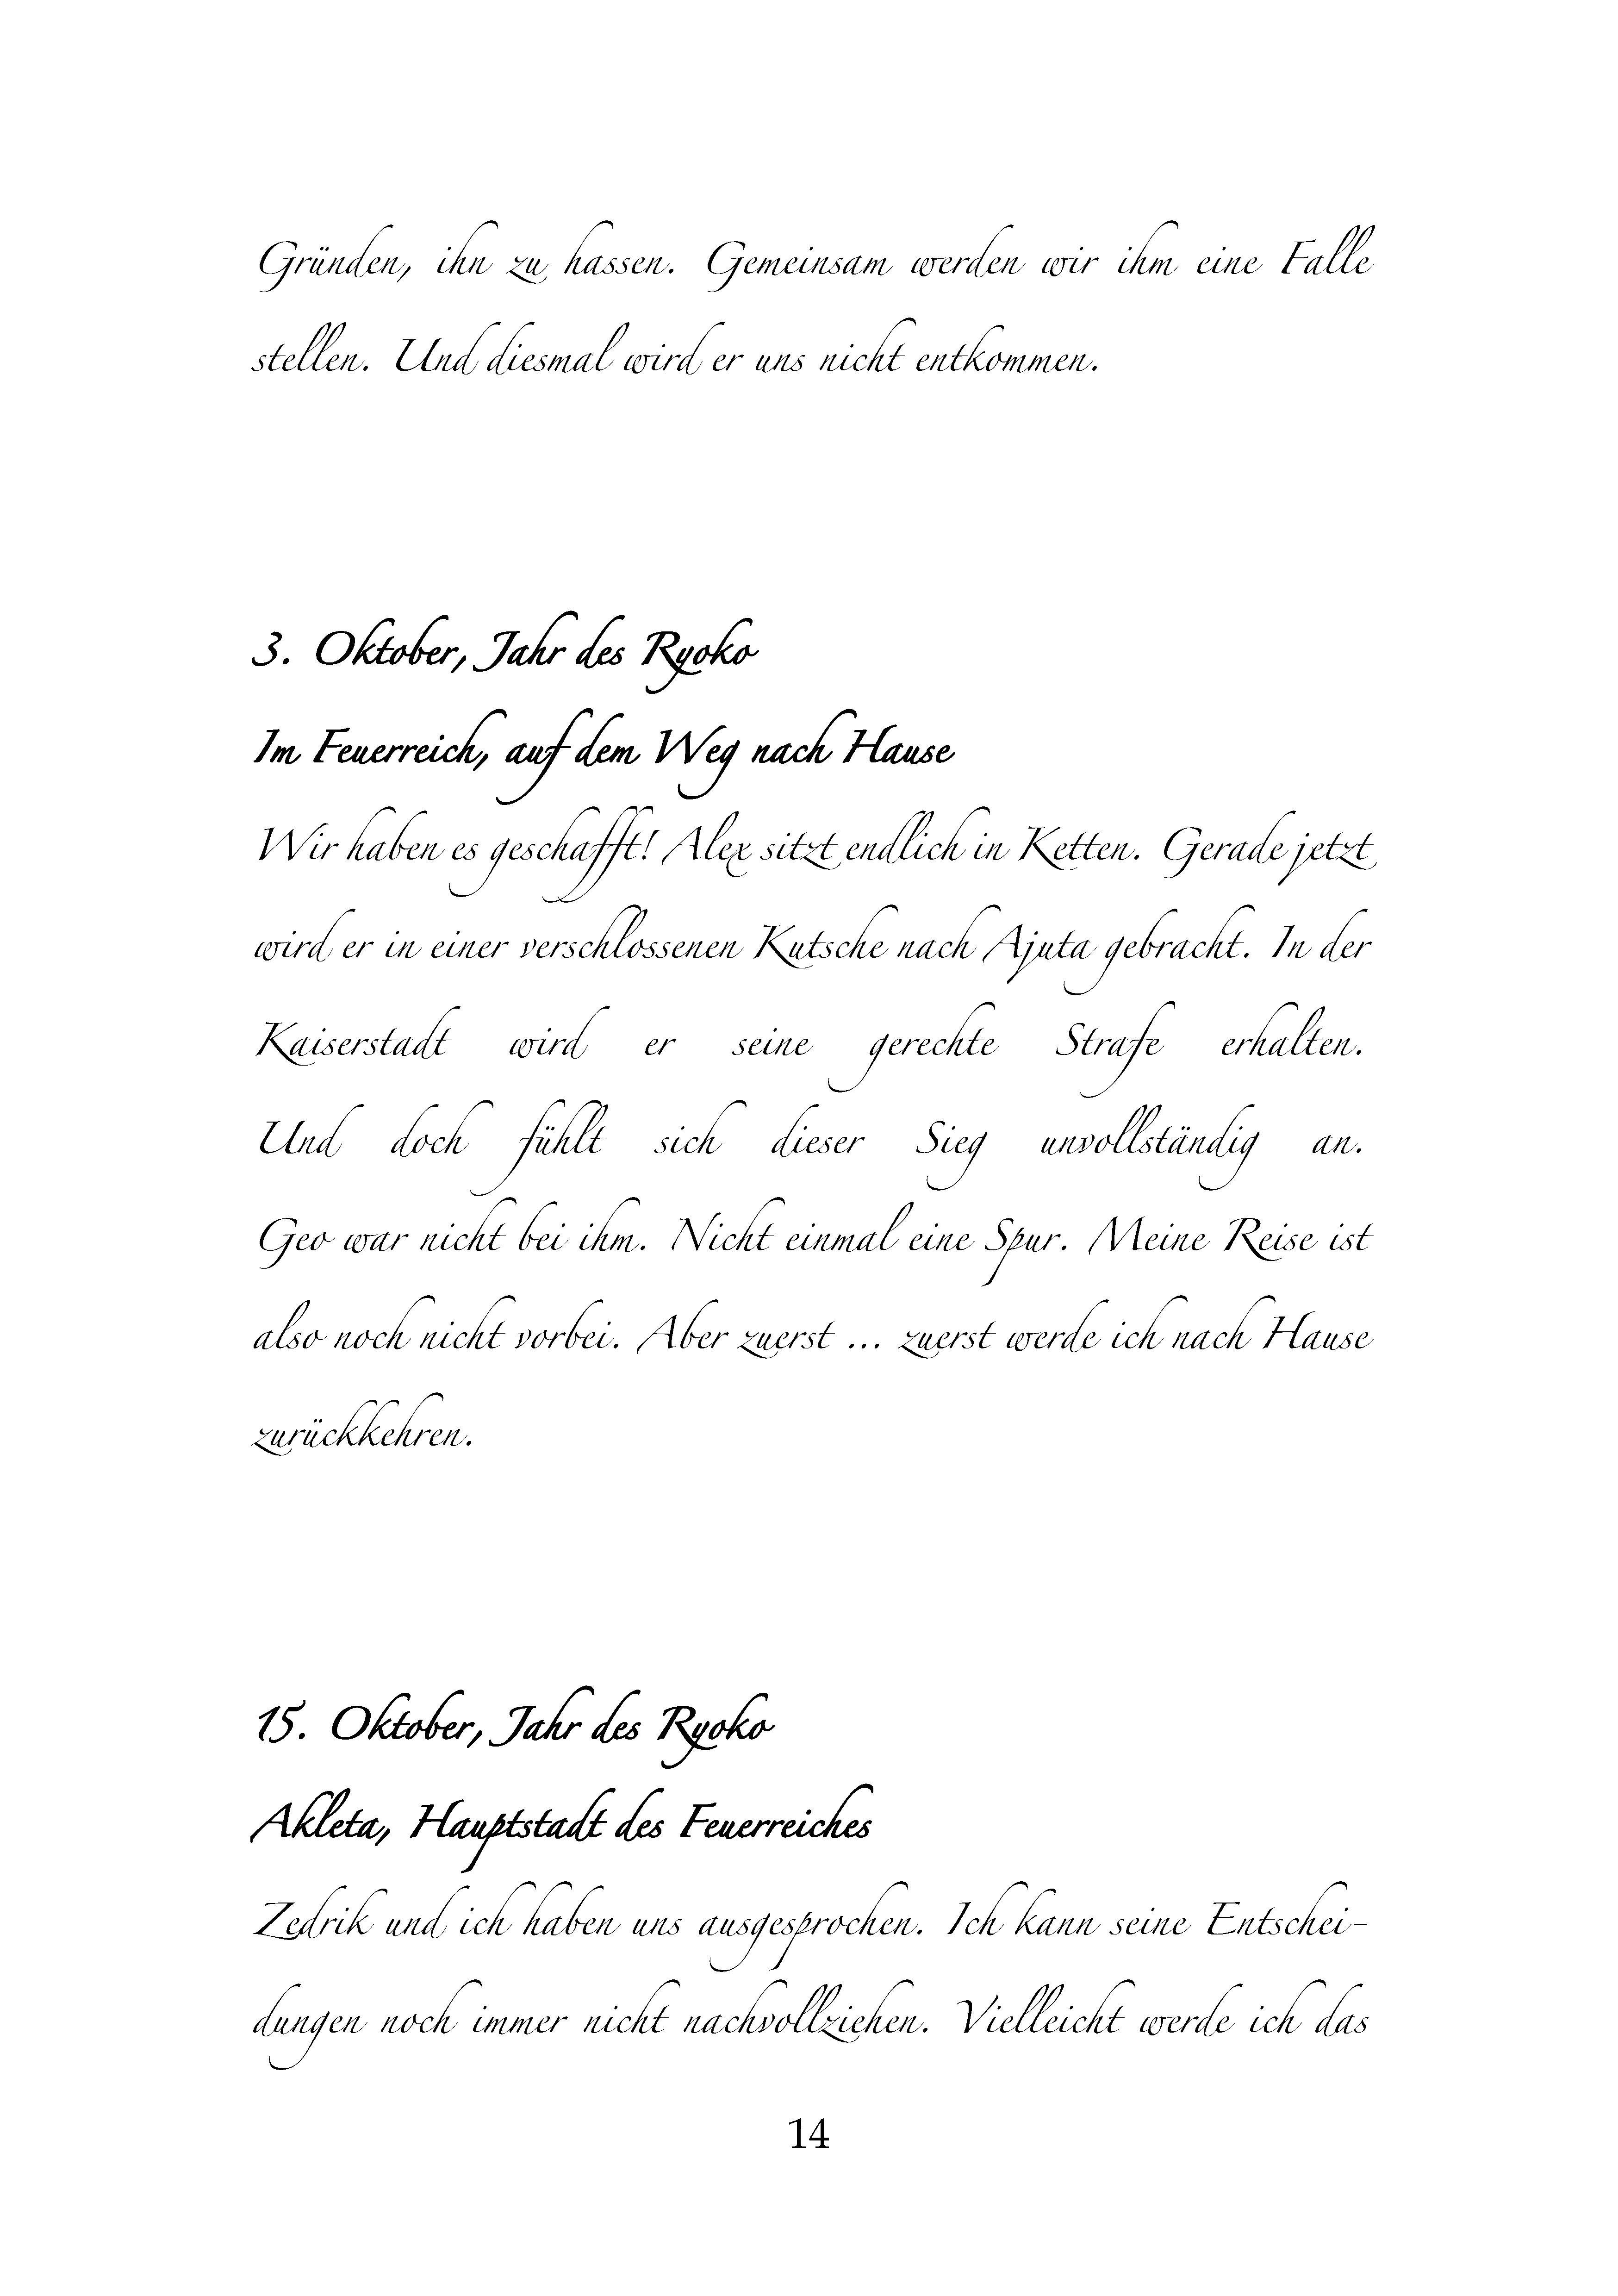 Gründen, ihn zu hassen. Gemeinsam werden wir ihm eine Falle
stellen. Und diesmal wird er uns nicht entkommen.
3. Oktober, Jahr des Ryoko
Im Feuerreich, auf dem Weg nach Hause
Wir haben es geschafft! Alex sitzt endlich in Ketten. Gerade jetzt
wird er in einer verschlossenen Kutsche nach Ajuta gebracht. In der
Kaiserstadt wird er seine gerechte Strafe erhalten.
Und doch fühlt sich dieser Sieg unvollständig an.
Geo war nicht bei ihm. Nicht einmal eine Spur. Meine Reise ist
also noch nicht vorbei. Aber zuerst ... zuerst werde ich nach Hause
zurückkehren.
15. Oktober, Jahr des Ryoko
Akleta, Hauptstadt des Feuerreiches
Zedrik und ich haben uns ausgesprochen. Ich kann seine Entschei-
dungen noch immer nicht nachvollziehen. Vielleicht werde ich das
14